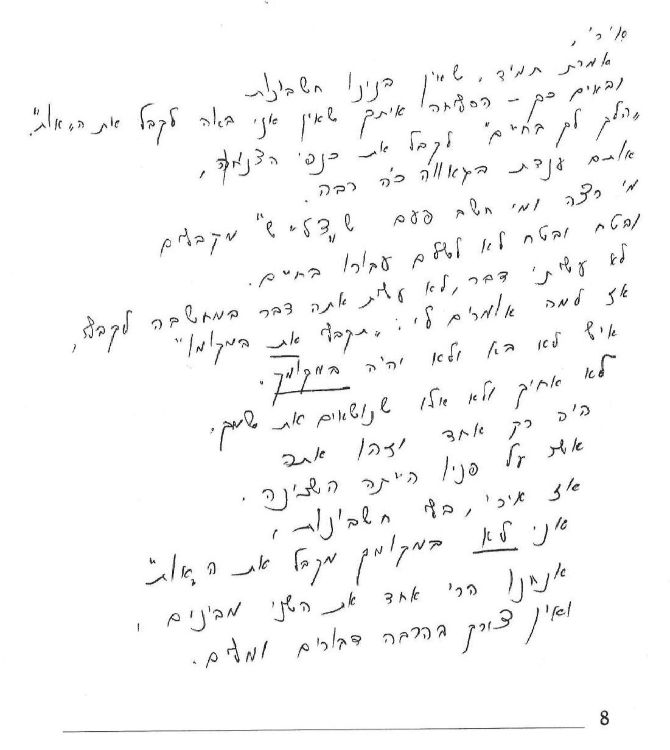 אירי,
אמרת תמיד, שאין בנינו חשבונות
ובאים כך – הסליחה איתך שאין אני באה לקבל את ה"אות".
"הלך לך בחיים" לקבל את כנפי הצניחה,
אותם ענדת בגאווה רבה.
מי רצה ומי חשב פעם שצל"ש מקבלים
ובטח ובטח לא לשלם עבורו בחיים.
לא עשיתי דבר, לא עשית אתה דבר במחשבה לקבלו,
אז למה אומרים לי: "תקבלי את במקומו"
איש לא בא ולא יהיה במקומך.
לא אחיך ולא אלו שנושאים את שמך.
היה רק אחד וזהו אתה
אשר על פניו הייתה השכינה.
אז אירי, בלי חשבונות,
אני לא במקומך מקבל את ה"אות"
אנחנו הרי אחד את השני מבינים,
ואין צורך בהרבה דבורים ומלים.
8